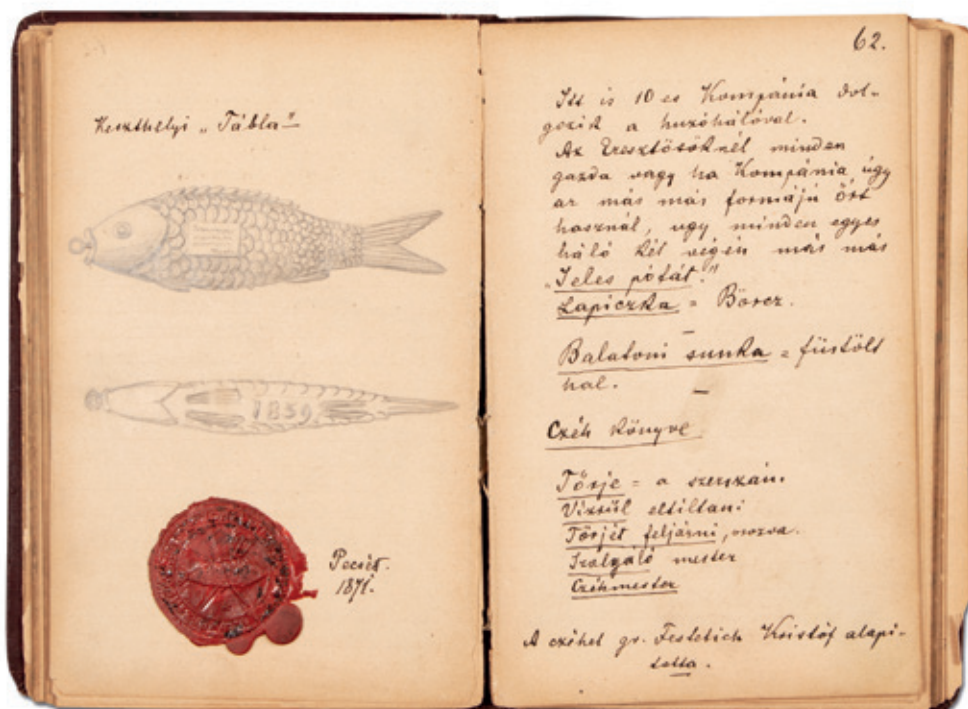 Keszthelyi „Tábla"
1839
Pecsét.
1871.
62.
Itt is 10 es Kompánia dol-
gozik a huzóhálóval.
Az Eresztősöknél minden
gazda vagy ha Kompánia úgy
az más más formájú őrt
használ, ugy minden egyes
háló két végén más más
„Jeles pótát."
Lapiczka = Börcz.
Balatoni sunka = füstölt
hal.
Czéh könyve
Tőrje = a szerszám.
Víztűl eltiltani
Tőrjét feljárni,
Szolgáló mester
Czéhmester
A czéhet gr. Festetich Kristóf alapí-
totta.